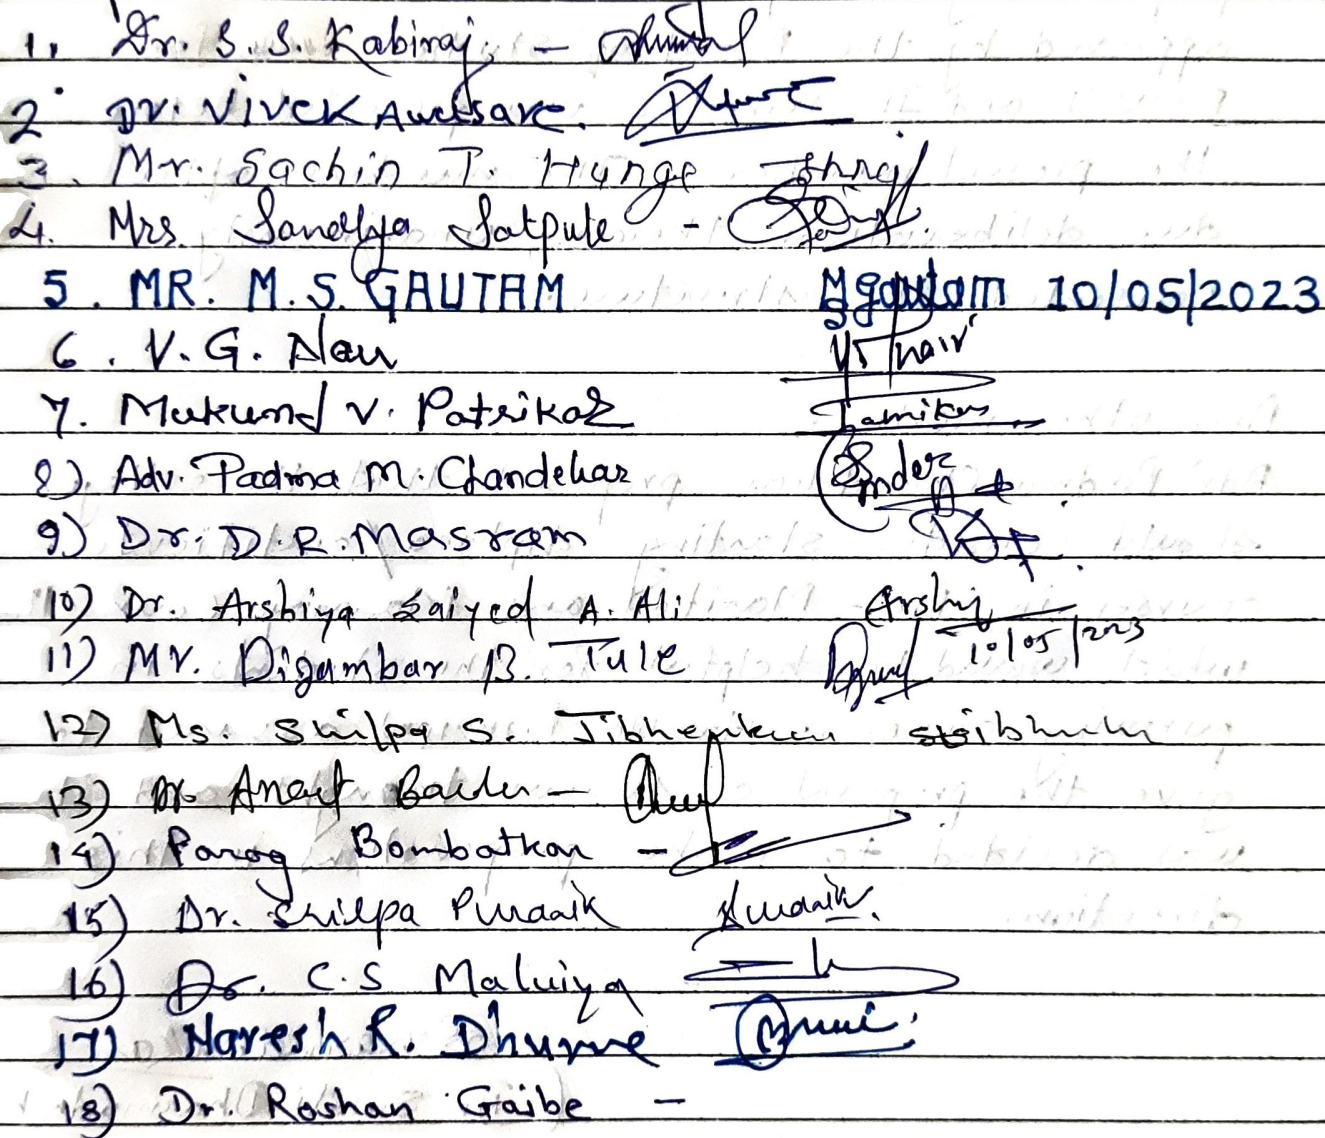 1. Dr. S. S. Kabiraj. -
2. Dr. Vivek Awasare.
3. Mr. Sachin T. Hunge
4. Mrs Sandhya Satpute -
5. MR. M.S. GAUTAM Mgautam 10/05/2023
6. V. G. Nair
7. Mukund V. Patrikar
8). Adv. Padma M. Chandekar
9) Dr. D.R. Masram
10) Dr. Arshiya Zaiyed A. Ali Arshiy
11) Mr. Digambar B. Tule 10/05/2023
12) Ms. Shilpa S. Jibhenkar
13) Dr.
14) Parag Bombatkar -
15) Dr. Shilpa Puranik
16) Dr. C.S Malviya
17) Naresh R. Dhurve
18) Dr. Roshan Gaibe -